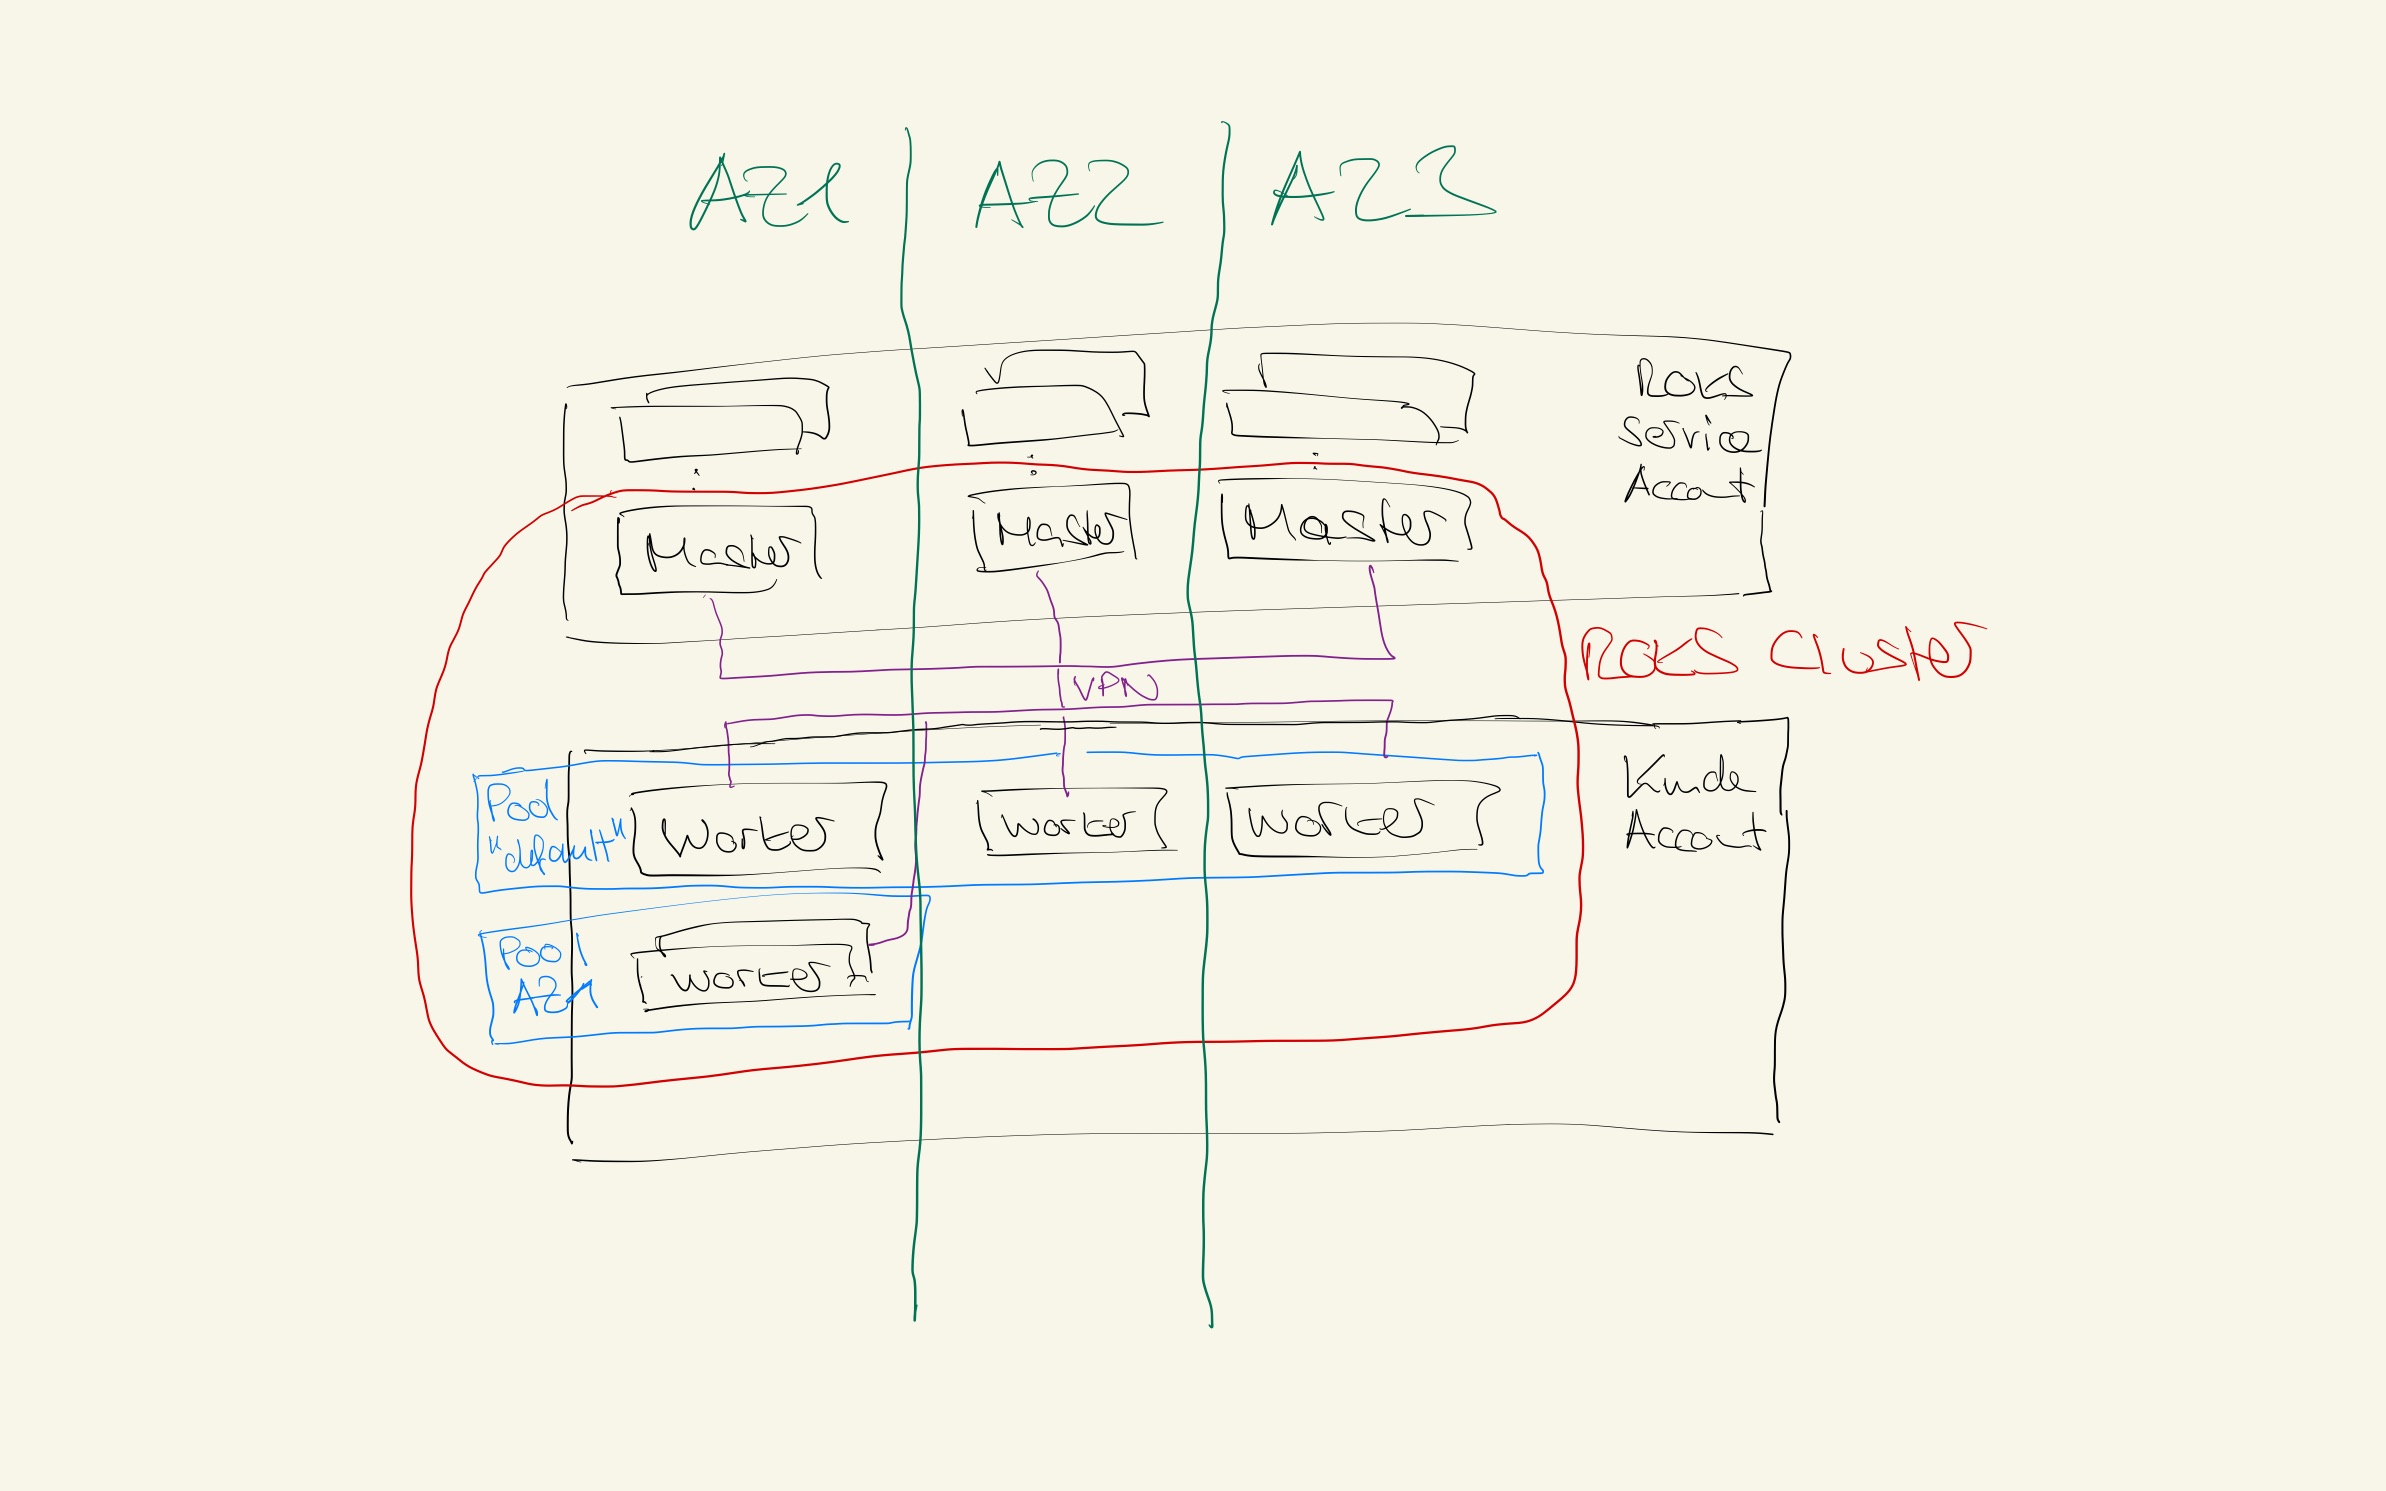 AZ1
AZ2
AZ3
ROKS
Service
Account
Master
Master
Master
ROKS Cluster
VPN
Kunde
Account
Pool
"default"
Worker
Worker
Worker
Pool
AZ1
Worker